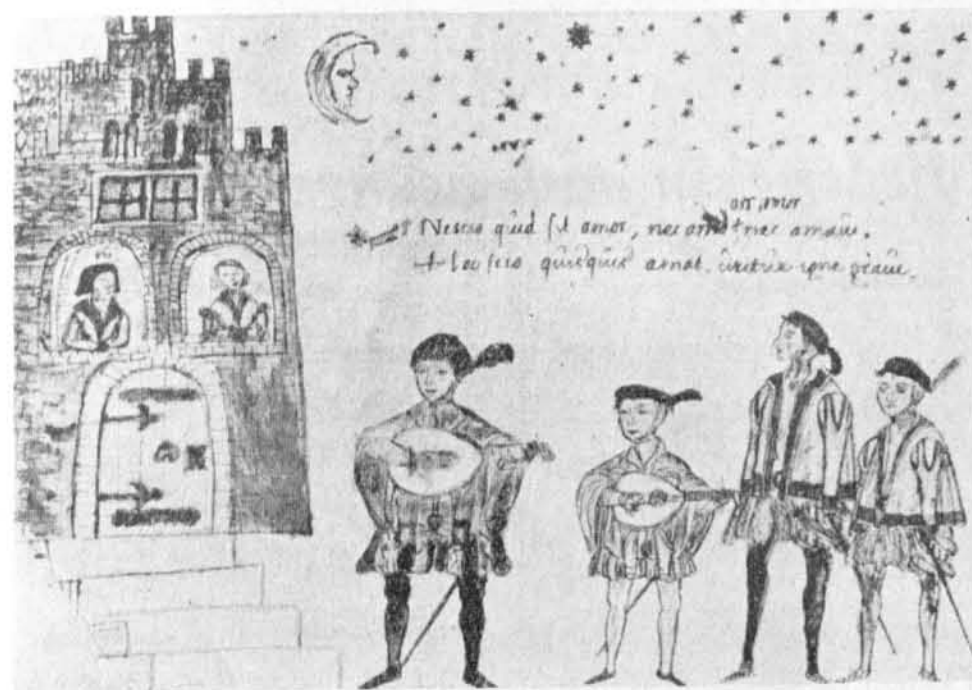 amor
Nescio quid sit amor, nec amo, nec amavi.
Hoc scio quisquis amat, uritur igne gravi.